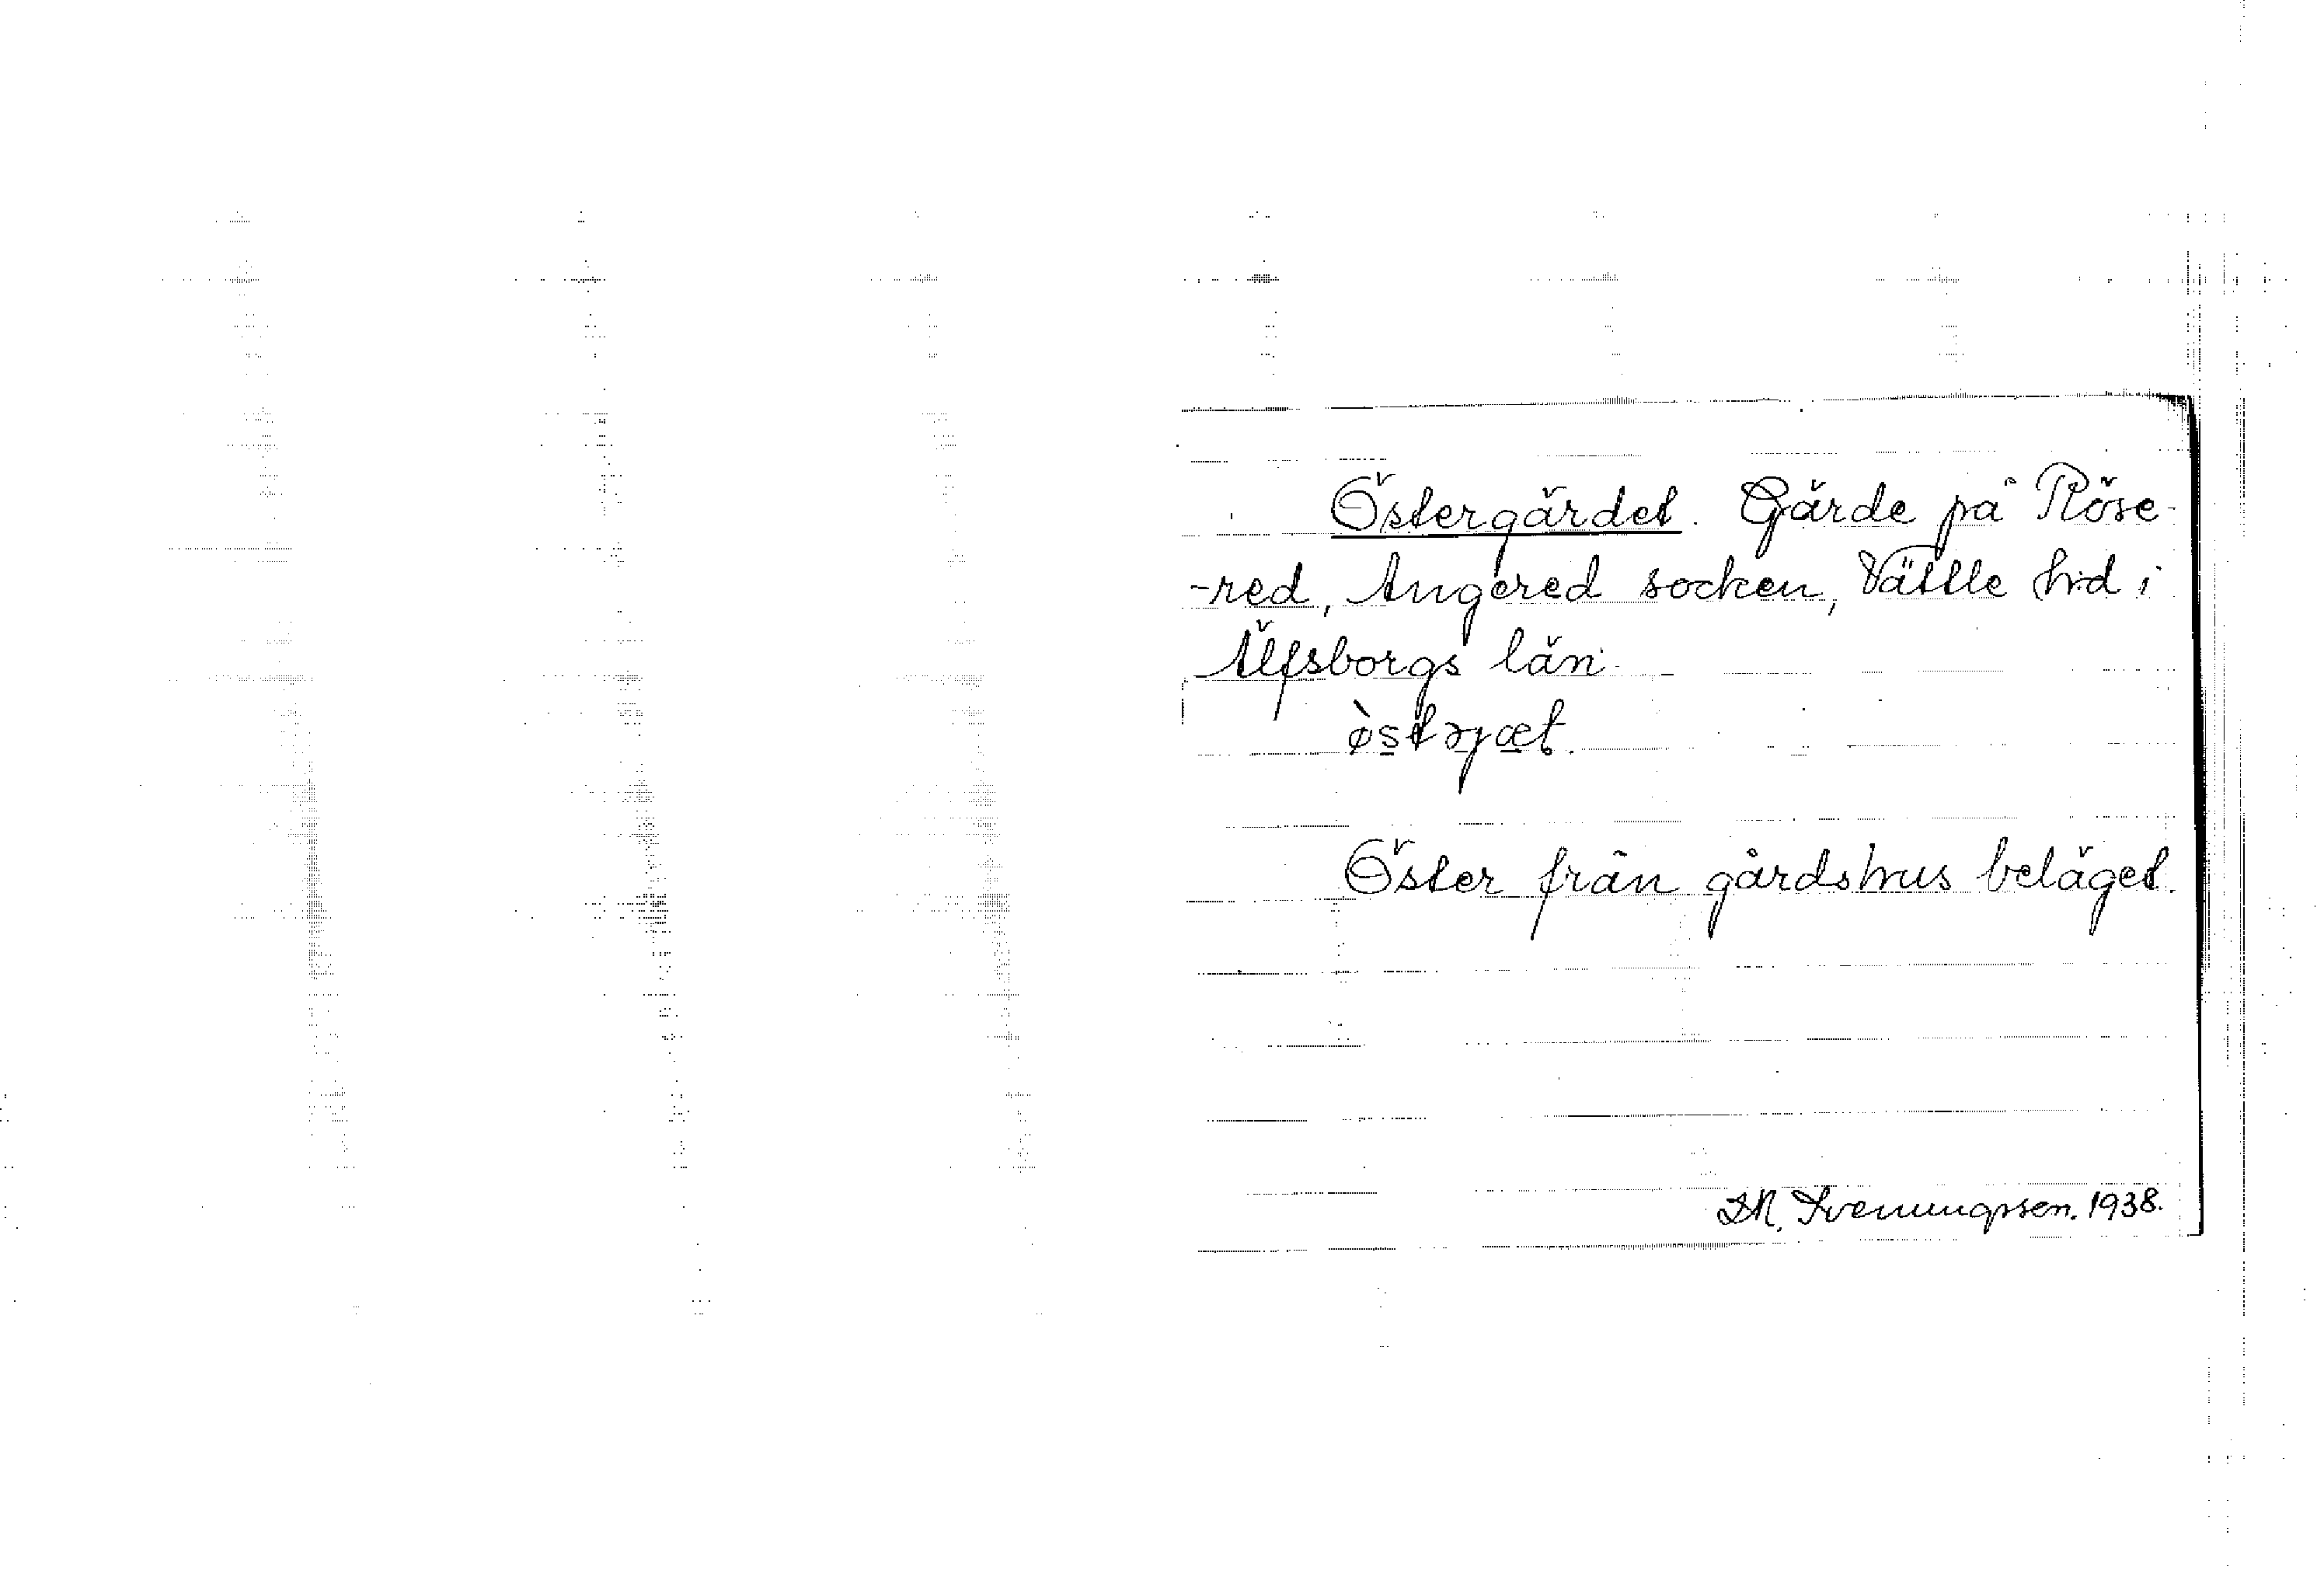 Östergärdet. Gärde på Röse-
-red, Angered socken, Vättle hd i
Älfsborgs län.
östrjæt.
Öster från gårdshus beläget.
1938.